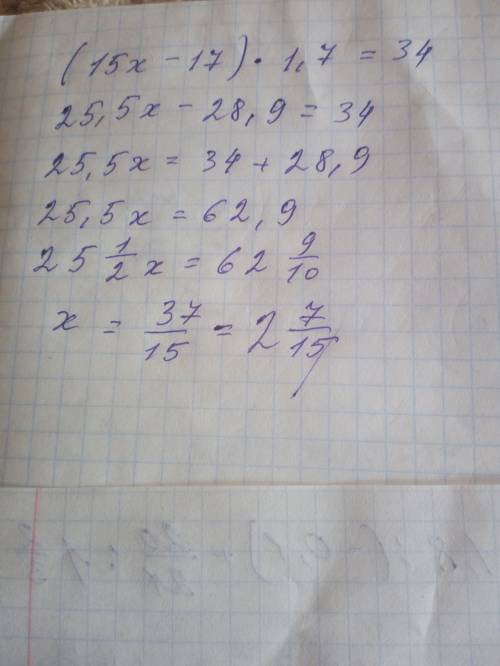 (15x - 17) · 1,7 = 34
25,5x - 28,9 = 34
25,5x = 34 + 28,9
25,5x = 62,9
25 1/2 x = 62 9/10
x = 37/15 = 2 7/15